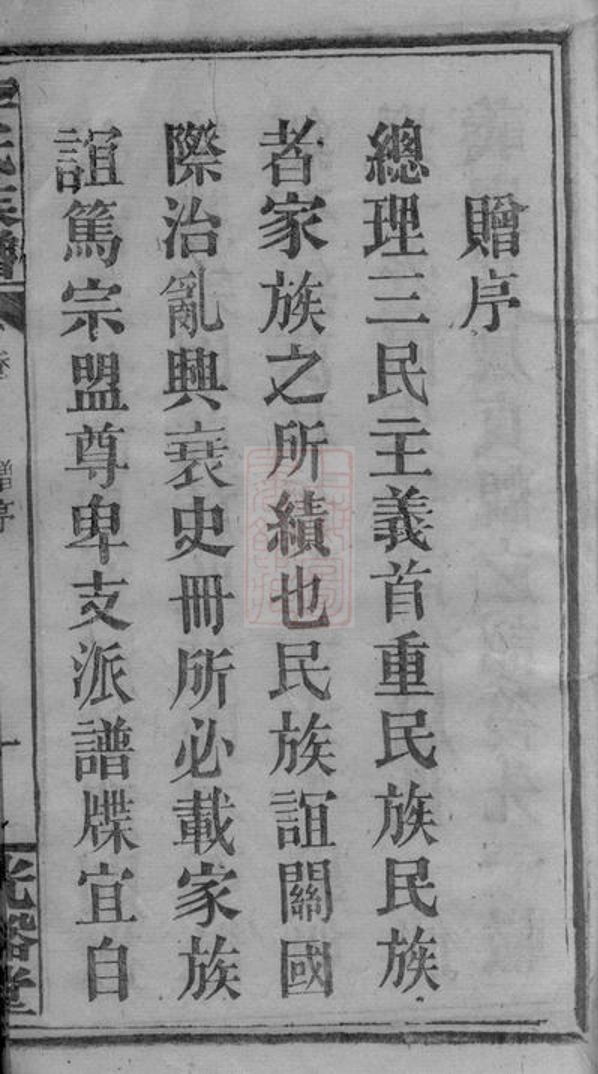 贈序
總理三民主義首重民族民族
者家族之所績也民族誼關國
際治亂興衰史冊所必載家族
誼篤宗盟尊卑支派譜牒宜自
氏族譜
贈序
一